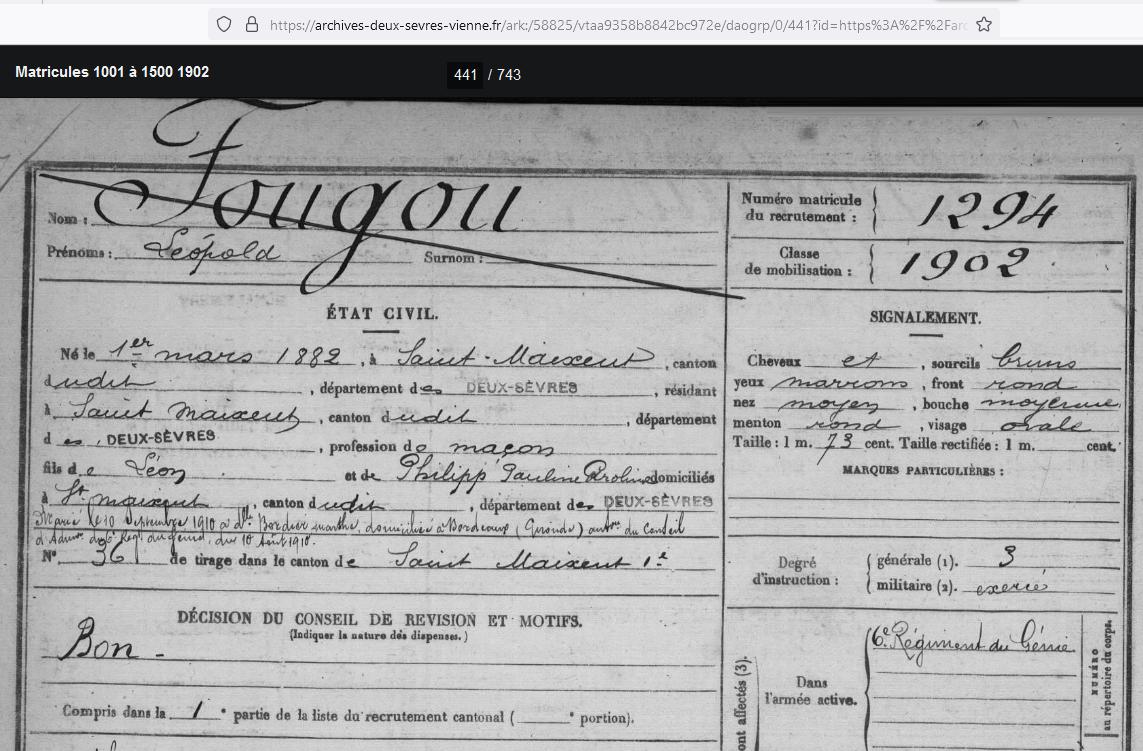 https://archives-deux-sevres-vienne.fr/ark:/58825/vtaa9358b8842bc972e/daogrp/0/441?id=https%3A%2F%2Farc
Matricules 1001 à 1500 1902
441 / 743
Nom : Fougou
Prénoms : Léopold Surnom :
Numéro matricule
du recrutement : 1294
Classe
de mobilisation : 1902
ÉTAT CIVIL.
Né le 1er mars 1882, à Saint-Maixent, canton
dudit, département des DEUX-SÈVRES, résidant
à Saint Maixent, canton dudit, département
des DEUX-SÈVRES, profession de maçon
fils de Léon et de Philipp Pauline domiciliés
à St maixent, canton dudit, département des DEUX-SÈVRES
Marié le 10 Septembre 1910 à dlle Bordier marthe, domiciliée à Bordeaux (Gironde) auton du Conseil
d'Admon du 6e Régt du génie, du 10 Août 1910.
N° 36 de tirage dans le canton de Saint Maixent 1e
SIGNALEMENT.
Cheveux et, sourcils bruns
yeux marrons, front rond
nez moyen, bouche moyenne,
menton rond, visage ovale
Taille : 1 m. 73 cent. Taille rectifiée : 1 m. cent.
MARQUES PARTICULIÈRES :
Degré
d'instruction :
générale (1). 3
militaire (2). exercé
DÉCISION DU CONSEIL DE REVISION ET MOTIFS.
(Indiquer la nature des dispenses.)
Bon -
Compris dans la 1e partie de la liste du recrutement cantonal ( e portion).
ont affectés (3).
Dans
l'armée active.
6e Régiment du Génie
NUMÉRO
au répertoire du corps.